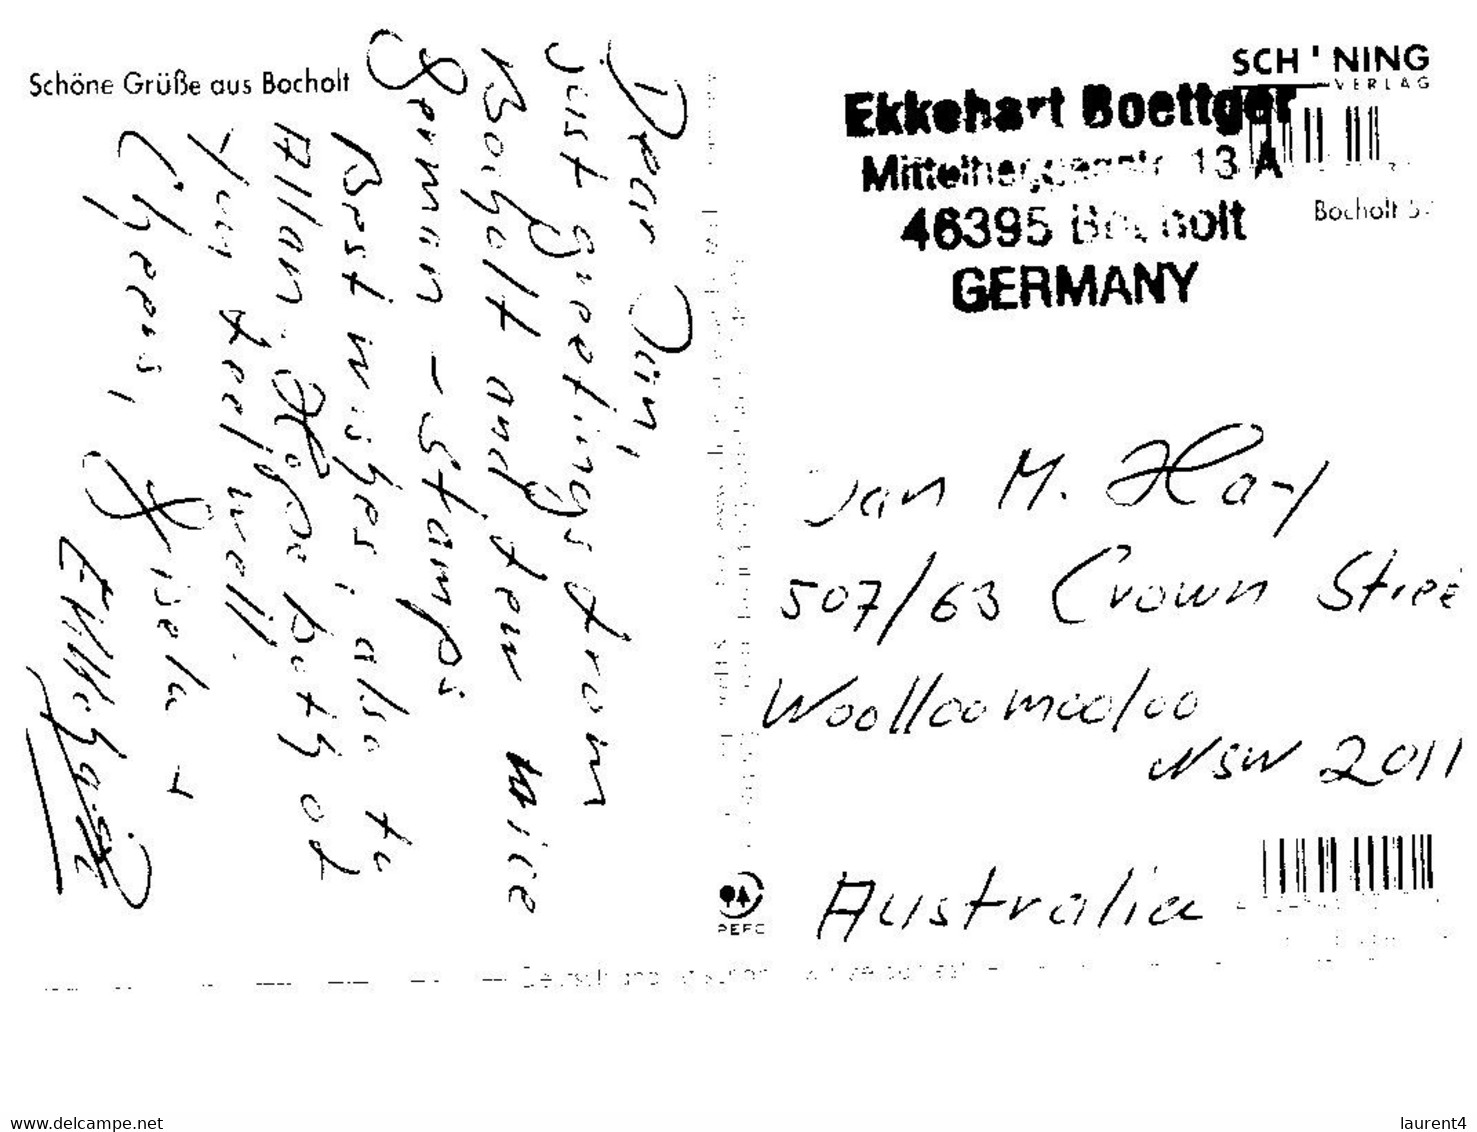 Schöne Grüße aus Bocholt
Dear Jan,
just greetings from
Bocholt and few nice
German-stamps
Best wishes; also to
Allan. Hope both of
you feel well.
Cheers, Gisela +
Ekkehart
SCH NING
VERLAG
Ekkehart Boettger
13 A
46395 Bocholt
GERMANY
Bocholt
Jan M. Hay
507/63 Crown Stree
Woolloomooloo
NSW 2011
Australia
PEFC
www.delcampe.net
laurent4